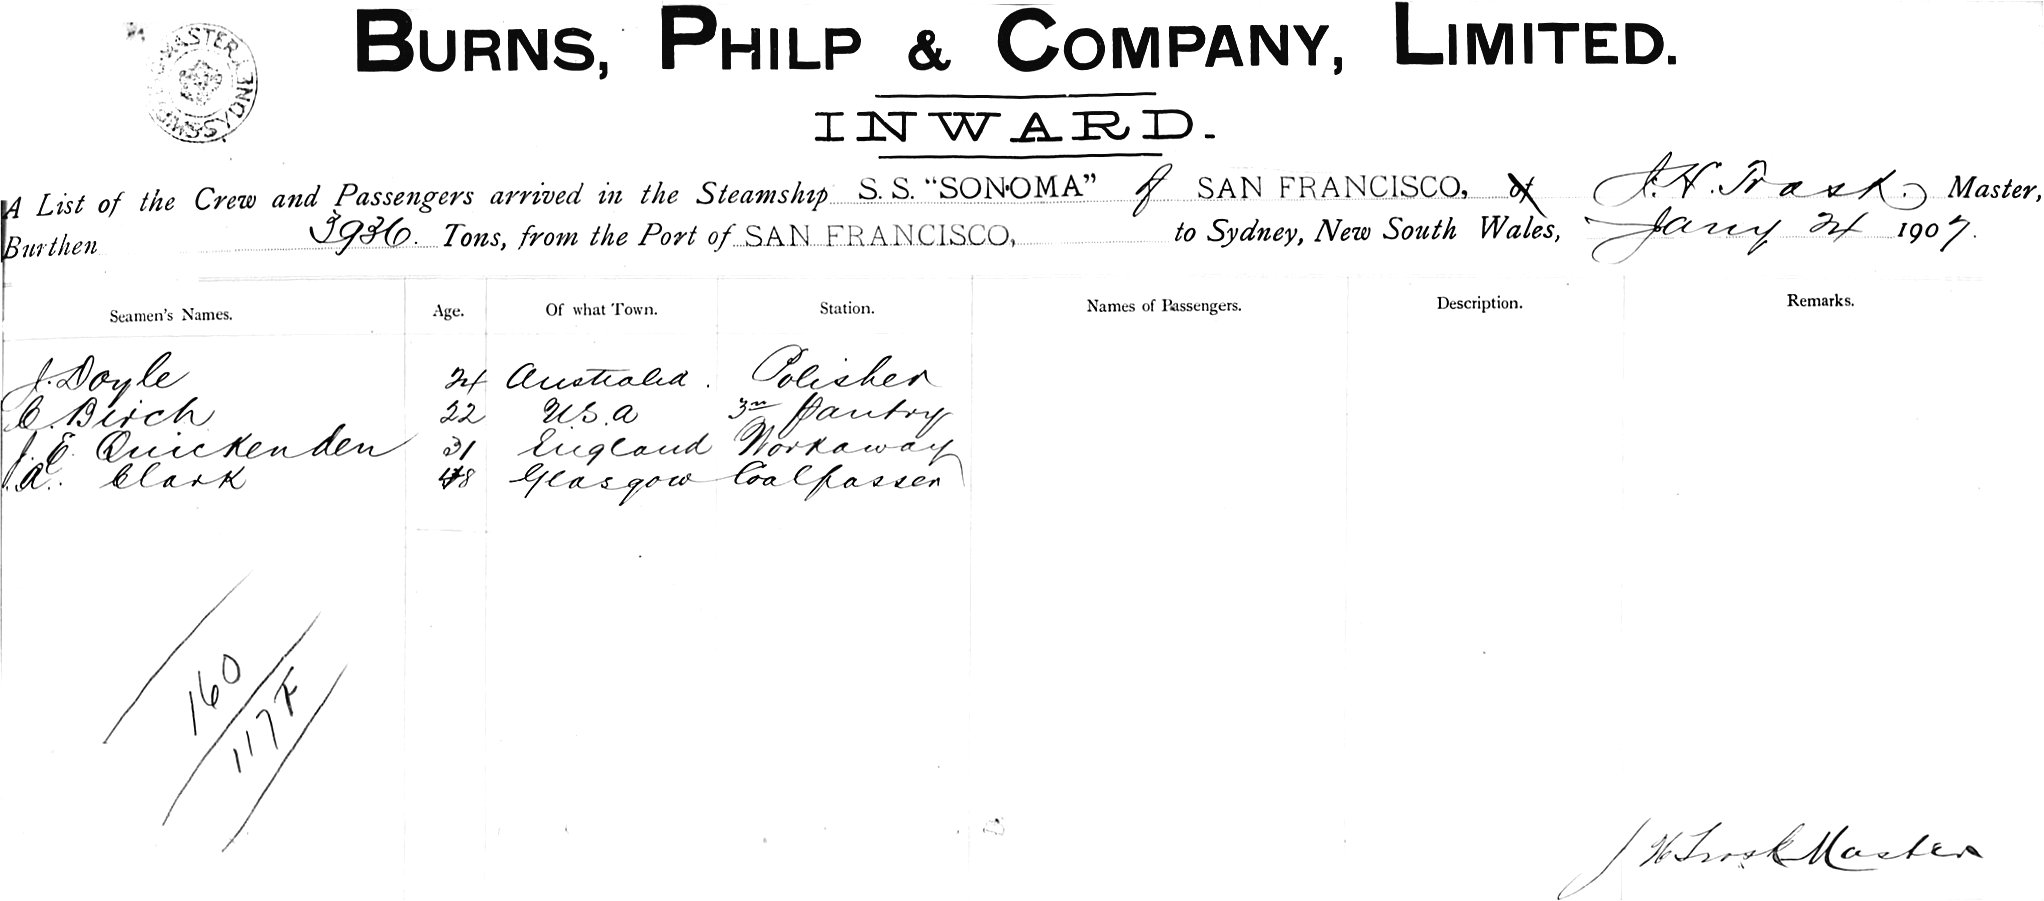 BURNS, PHILP & COMPANY, LIMITED.
INWARD.
A List of the Crew and Passengers arrived in the Steamship S.S. "SONOMA" of SAN FRANCISCO, of J. H. Trask. Master,
Burthen 3936. Tons, from the Port of SAN FRANCISCO, to Sydney, New South Wales, Jany 24 1907.
Seamen's Names. Age. Of what Town. Station. Names of Passengers. Description. Remarks.
J. Doyle 24 Australia. Polisher
C. Birch 22 U.S.A 3rd Pantry
J. E. Quickenden 31 England Workaway
A. Clark 48 Glasgow Coalpasser
160
117 F
J H Trask Master